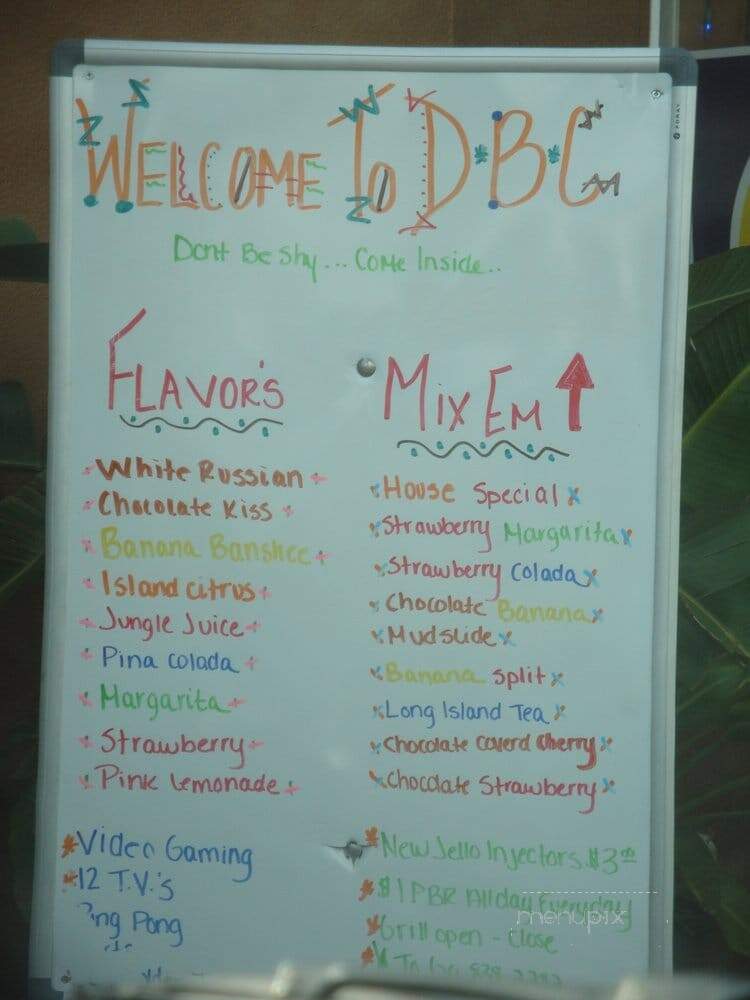 WELCOME To D·B·C
Dont Be Shy... Come Inside..
FLAVOR'S
White Russian
Chocolate Kiss
Banana Banshee
Island citrus
Jungle Juice
Pina colada
Margarita
Strawberry
Pink Lemonade
Video Gaming
12 T.V.'s
Pong
Mix Em
House Special
Strawberry Margarita
Strawberry Colada
Chocolate Banana
Mudslide
Banana Split
Long Island Tea
Chocolate Coverd Cherry
Chocolate Strawberry
New Jello Injectors $3.00
$1 PBR All day Everyday
Grill open - Close
To Go
menupix
FORAY